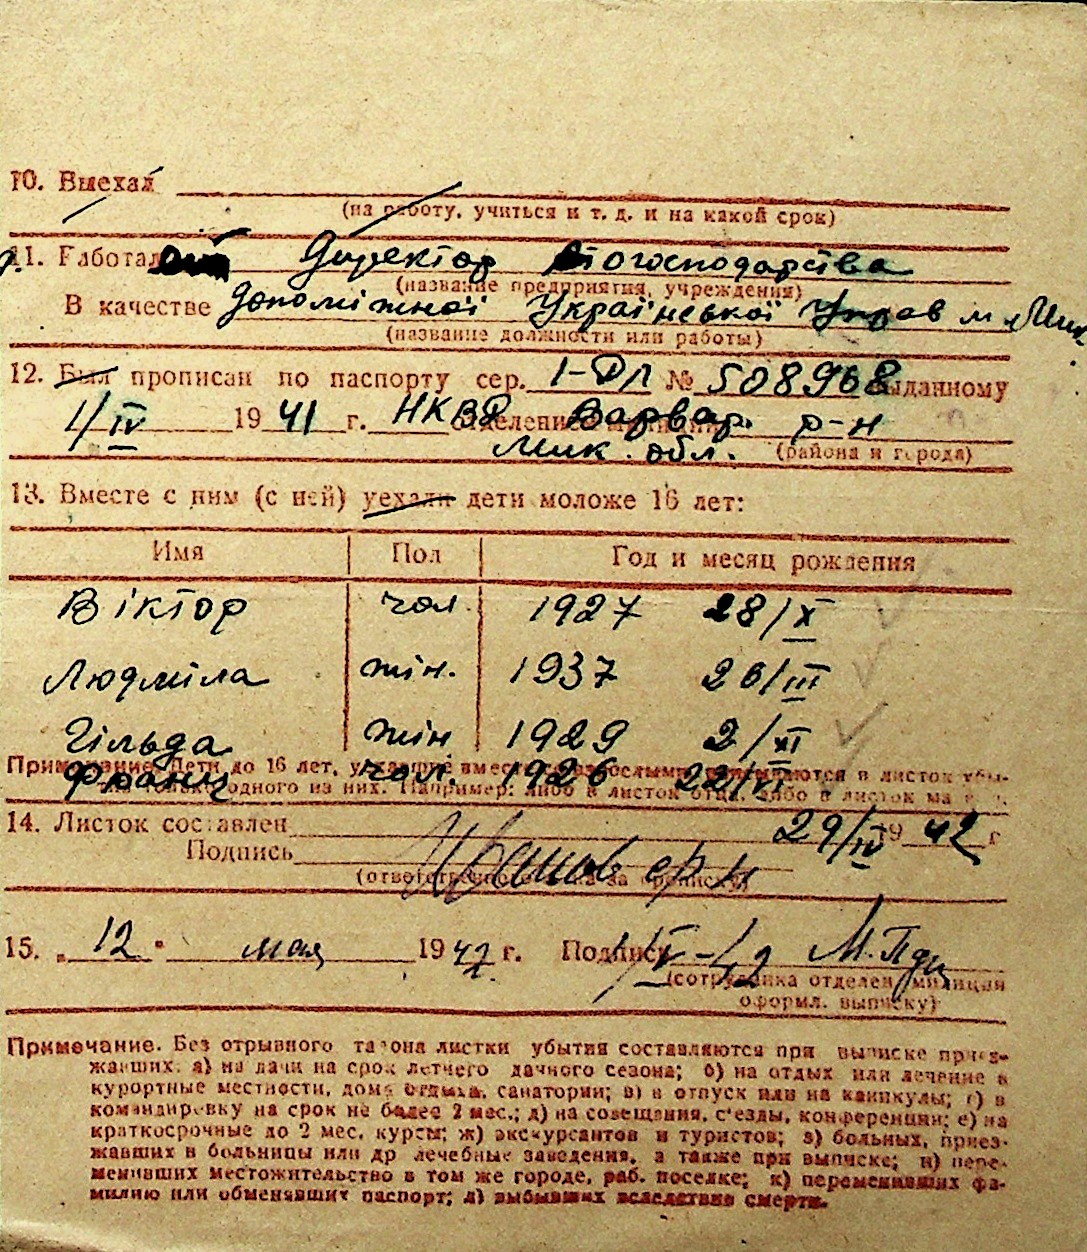 10. Выехал
(на работу, учиться и т. д. и на какой срок)
11. Работал Директор господарства
(название предприятия, учреждения)
В качестве допоміжної Української Управ м Мик
(название должности или работы)
12. Был прописан по паспорту сер. 1-ДЛ № 508968 выданному
1/IV 1941 г. НКВД отделением Варвар. р-н
Мик. обл. (района и города)
13. Вместе с ним (с ней) уехали дети моложе 16 лет:
Имя Пол Год и месяц рождения
Віктор чол. 1927 28/X
Людміла жін. 1937 26/III
Гільда жін 1929 2/XI
Примечание. Дети до 16 лет, уехавшие вместе с взрослыми, вписываются в листок убы-
Франц чол. 1926 22/VI
одного из них. Например: либо в листок отца, либо в листок
14. Листок составлен 29/IV 1942 г
Подпись
(ответственного за прописку)
15. „12" мая 1942 г. Подпись 1/V-42
(сотрудника отделен. милиции
оформл. выписку)
Примечание. Без отрывного талона листки убытия составляются при выписке приез-
жавших: а) на дачи на срок летнего дачного сезона; б) на отдых или лечение в
курортные местности, дома отдыха, санатории; в) в отпуск или на каникулы; г) в
командировку на срок не более 2 мес.; д) на совещания, с'езды, конференции; е) на
краткосрочные до 2 мес. курсы; ж) экскурсантов и туристов; з) больных, приез-
жавших в больницы или др лечебные заведения, а также при выписке; и) пере-
менивших местожительство в том же городе, раб. поселке; к) переменивших фа-
милию или обменявших паспорт; л) выбывших вследствие смерти.